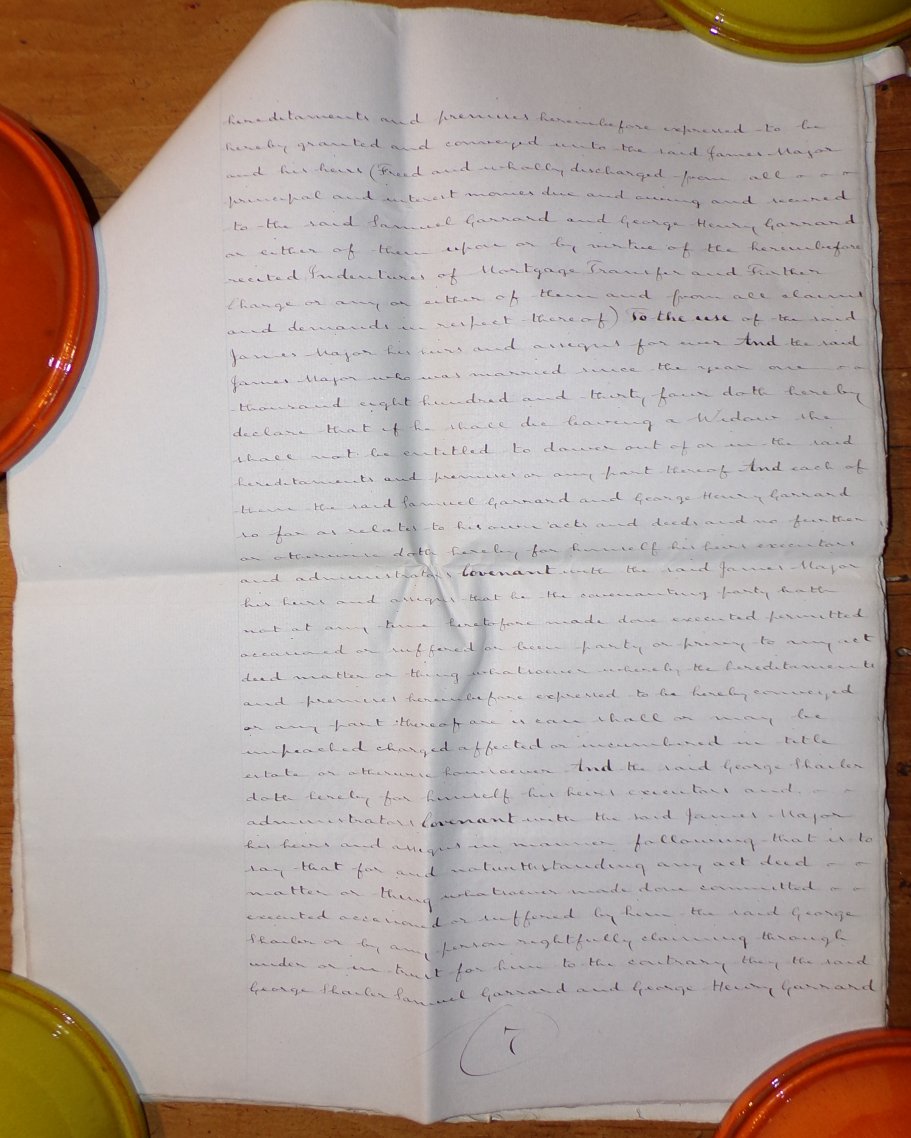 hereditaments and premises hereinbefore expressed to be
hereby granted and conveyed unto the said James Major
and his heirs (Freed and wholly discharged from all
principal and interest monies due and owing and secured
to the said Samuel Garrard and George Henry Garrard
or either of them upon or by virtue of the hereinbefore
recited Indentures of Mortgage Transfer and Further
Charge or any or either of them and from all claims
and demands in respect thereof) To the use of the said
James Major his heirs and assigns for ever And the said
James Major who was married since the year one
thousand eight hundred and thirty four doth hereby
declare that if he shall die leaving a Widow she
shall not be entitled to dower out of or in the said
hereditaments and premises or any part thereof And each of
them the said Samuel Garrard and George Henry Garrard
so far as relates to his own acts and deeds and no further
or otherwise doth hereby for himself his heirs executors
and administrators Covenant with the said James Major
his heirs and assigns that he the covenanting party hath
not at any time heretofore made done executed permitted
occasioned or suffered or been party or privy to any act
deed matter or thing whatsoever whereby the hereditaments
and premises hereinbefore expressed to be hereby conveyed
or any part thereof are is can shall or may be
impeached charged affected or incumbered in title
estate or otherwise howsoever And the said George Shailer
doth hereby for himself his heirs executors and
administrators Covenant with the said James Major
his heirs and assigns in manner following that is to
say that for and notwithstanding any act deed
matter or thing whatsoever made done committed
executed occasioned or suffered by him the said George
Shailer or by any person rightfully claiming through
under or in trust for him to the contrary they the said
George Shailer Samuel Garrard and George Henry Garrard
7